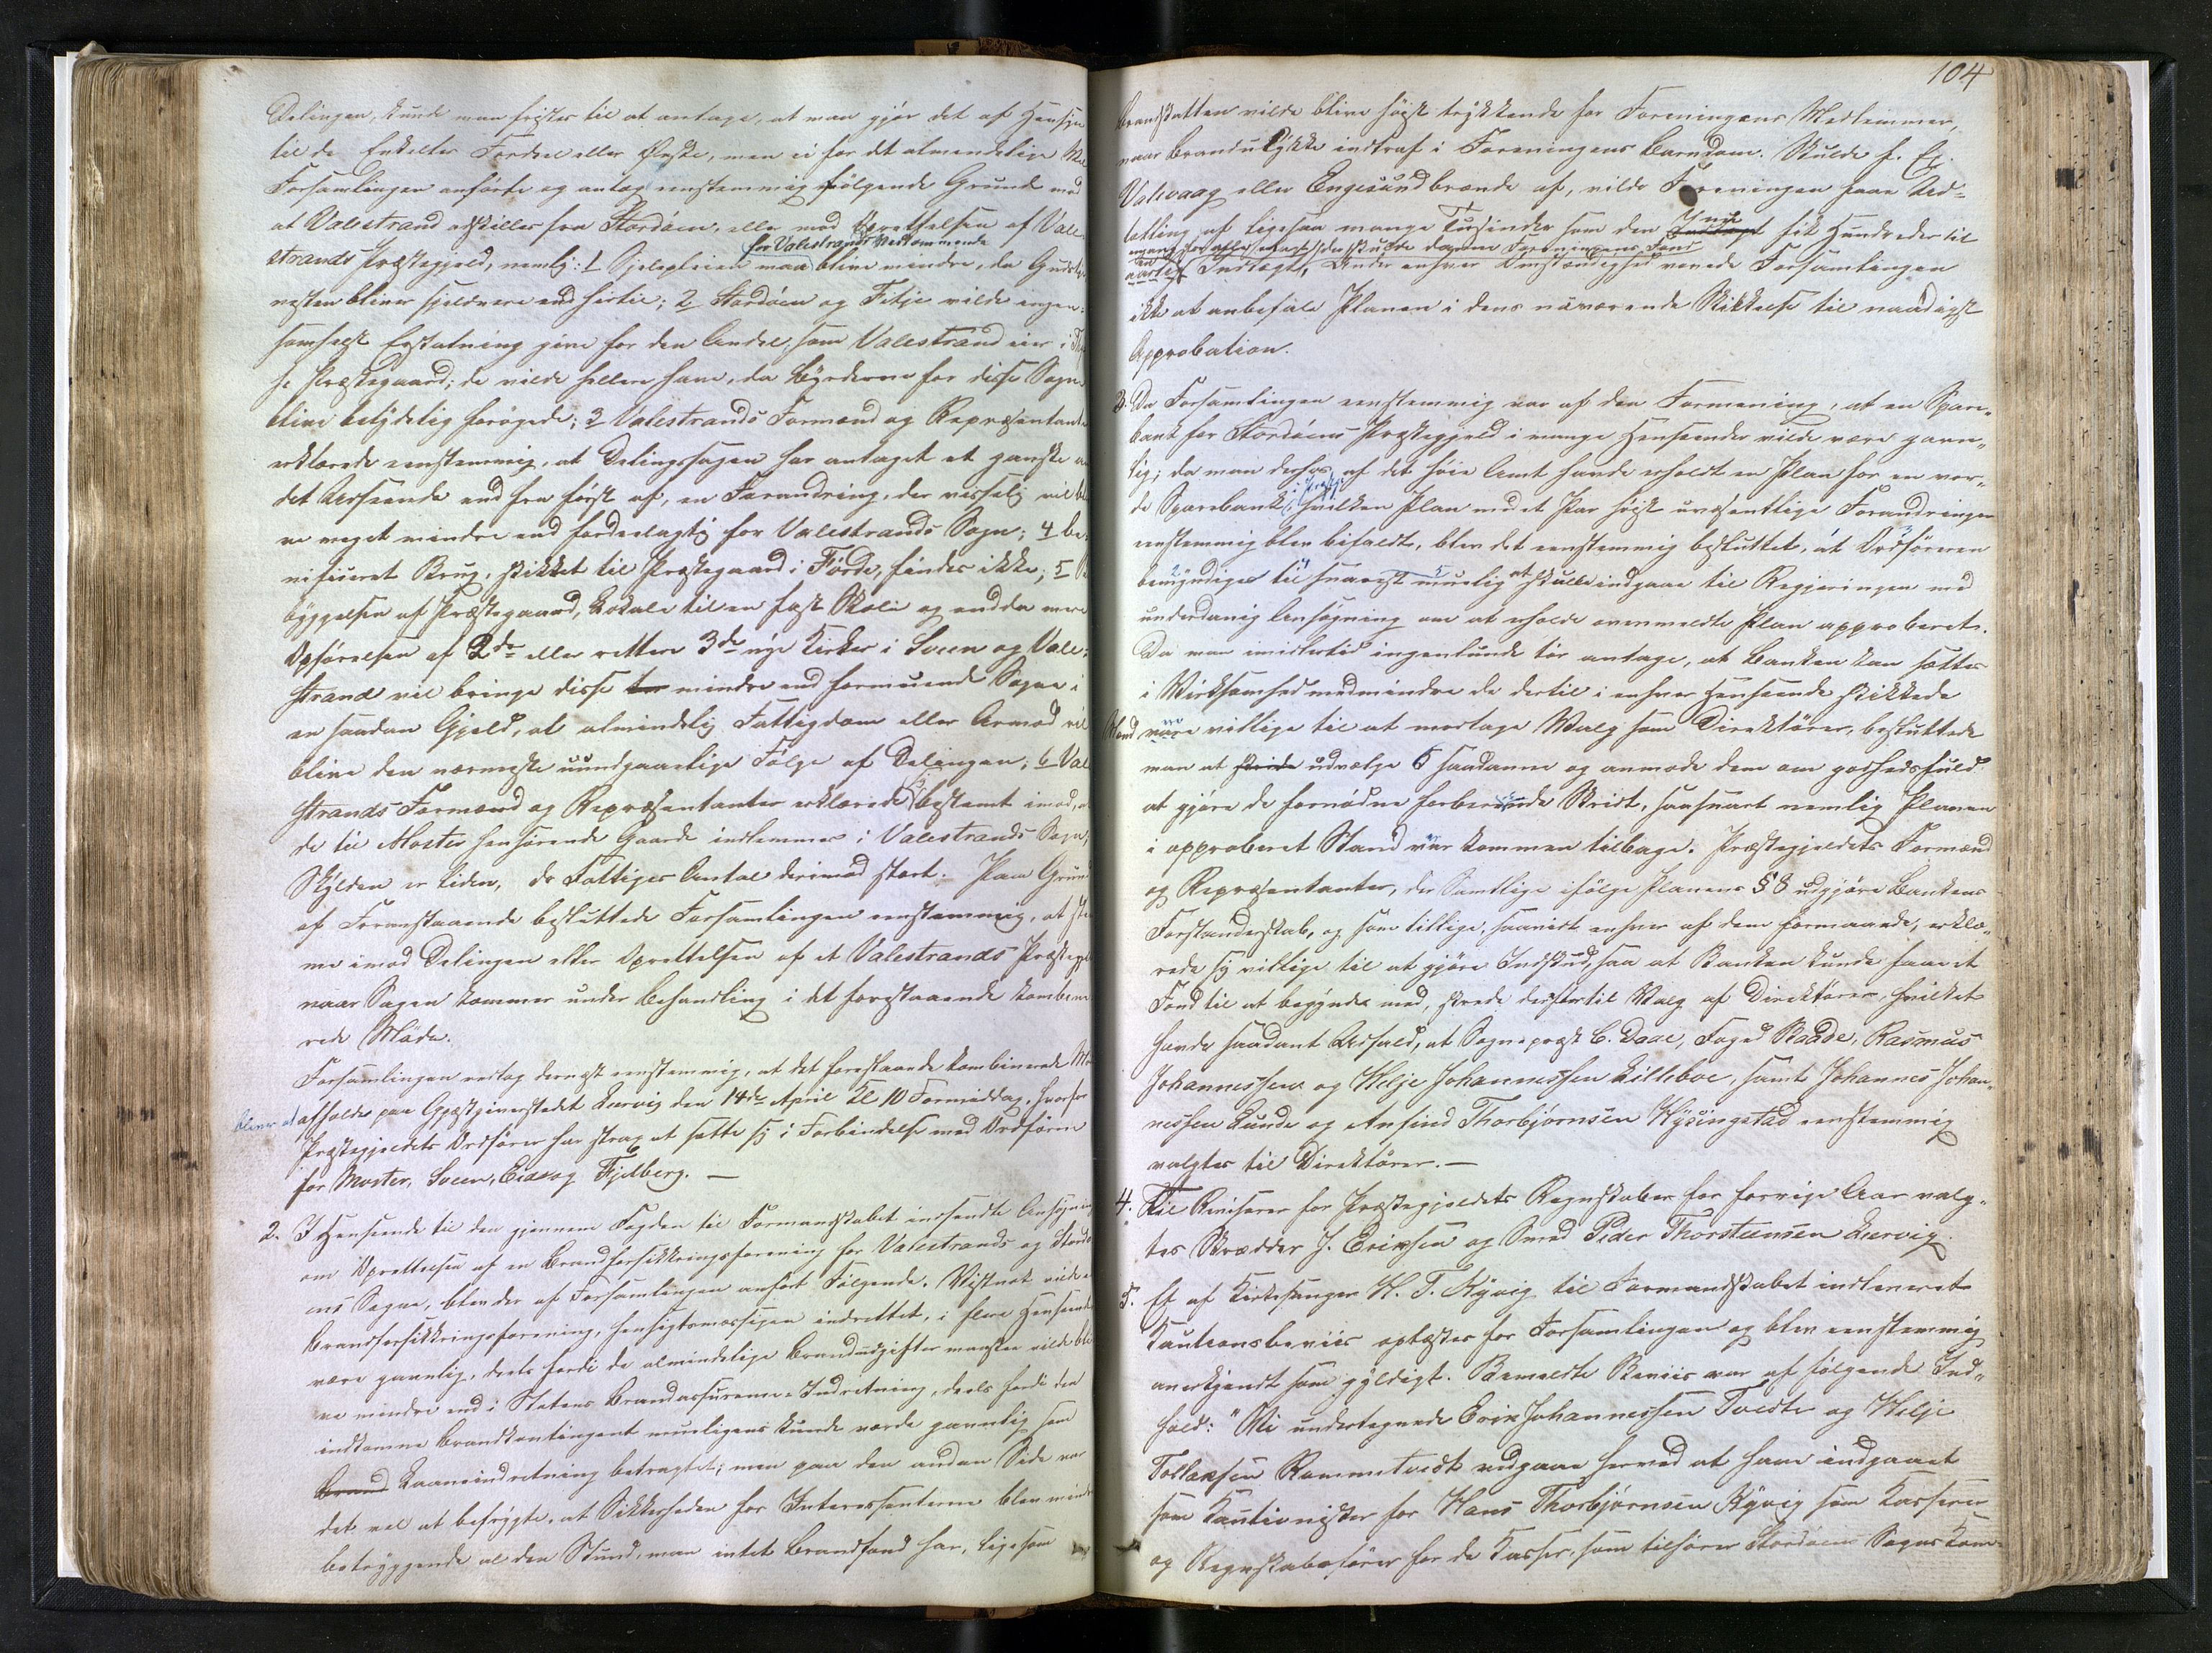 Delingen, kunde man fristes til at antage, at man gjør det af Hensyn
til de Enkeltes Fordeel eller Ønske, men ei for det almindelige Vel
Forsamlingen anførte og antog eenstemmig følgende Grunde mod
at Valestrand adskilles fra Stordøen, eller mod Oprettelsen af Vale-
strands Præstegjeld, nemlig: 1 Sjelepleien maa for Valestrands Vedkommende blive mindre, da Gudstje-
nesten bliver sjeldnere end hertil; 2 Stordøen og Fitje vilde ingen-
somhelst Erstatning give for den Andel, som Valestrand eier i
se Præstegaard; de vilde heller have, da Byrderne for disse Sogne
blive betydelig forøgede; 3 Valestrands Formænd og Repræsentanter
erklærede eenstemmig, at Delingssagen har antaget et ganske
det Udseende end fra først af, en Forandring, der visselig vil bli-
ve meget mindre end fordeelagtig for Valestrands Sogn; 4 be-
nificeret Brug, skikket til Præstegaard i Førde, findes ikke; 5 Be
byggelsen af Præstegaard, Lokale til en fast Skole og endda mere
Opførelsen af 2de eller rettere 3de nye Kirker i Sveen og Vale-
strand vil bringe disse mindre end formuende Sogne i
en saadan Gjeld, at almindelig Fattigdom eller Armod vil
blive den nærmeste uundgaaelige Følge af Delingen; 6 Vale
strands Formænd og Repræsentanter erklærede sig bestemt imod, at
de til Moster henhørende Gaarde indlemmes i Valestrands Sogn,
Skylden er liden, de Fattiges Antal derimod stort. Paa Grund
af Foranstaaende besluttede Forsamlingen eenstemmig, at stem
me imod Delingen eller Oprettelsen af et Valestrands Præstegjeld
naar Sagen kommer under Behandling i det forestaaende kombine
rede Møde.
Forsamlingen vedtog dernæst eenstemmig, at det forestaaende kombinerede Mø
bliver at afholde paa Gjæstgiverstedet Leervig den 14de April Kl 10 Formiddag, hvorfor
Præstegjeldets Ordfører har strax at sætte sig i Forbindelse med Ordførerne
for Moster, Sveen, Eid og Fjelberg. —
2. I Henseende til den gjennem Fogden til Formandskabet indsendte Ansøgning
om Oprettelsen af en Brandforsikkringsforening for Valestrands og Stordø-
ens Sogne, blev der af Forsamlingen anført Følgende. Vistnok vilde en
Brandforsikkringsforening, hensigtsmæssigen indrettet, i flere Henseender
være gavnlig, deels fordi de almindelige Brandudgifter maaskee vilde bli
ve mindre end i Statens Brandassurance-Indretning, deels fordi den
indkomne Brandkontingent mueligens kunde vorde gavnlig som
Brand Laaneindretning betragtet; men paa den anden Side var
det vel at befrygte, at Sikkerheden for Interessenterne blev mindre
betryggende al den Stund, man intet Brandfond har, ligesom
104
Brandskatten vilde blive høist trykkende for Foreningens Medlemmer,
naar Brandulykke indtraf i Foreningens Barndom. Skulde f. Ex.
Valevaag eller Engesund brænde af, vilde Foreningen faae Ud-
tælling af ligesaa mange Tusinder som den Indtægt fik Hundreder til
aarlig Indtægt, Under enhver Omstændighed vovede Forsamlingen
ikke at anbefale Planen i dens nuværende Skikkelse til naadigst
Approbation.
3. Da Forsamlingen eenstemmig var af den Formening, at en Spare-
bank for Stordøens Præstegjeld i mange Henseender vilde være gavn-
lig; da man derhos af det høie Amt havde erholdt en Plan for en vor-
de Sparebank, hvilken Plan med et Par høist uvæsentlige Forandringer
eenstemmig blev bifaldt, blev det eenstemmig besluttet, at Ordføreren
bemyndiges til snarest muelig at skulle indgaae til Regjeringen med
underdanig Ansøgning om at erholde ovenmeldte Plan approberet.
Da man imidlertid ingenlunde tør antage, at Banken kan sættes
i Virksomhed medmindre de dertil i enhver Henseende skikkede
Mænd vare villige til at modtage Valg som Direktører, besluttede
man at skride udvælge 5 saadanne og anmode dem om godhedsfuld
at gjøre de fornødne forberedende Skridt, saasnart nemlig Planen
i approberet Stand var kommen tilbage. Præstegjeldets Formænd
og Repræsentanter, der Samtlige ifølge Planens § 8 udgjøre Bankens
Forstanderskab, og som tillige, saavidt enhver af dem formaaede, erklæ-
rede sig villige til at gjøre Indskud, saa at Banken kunde faae et
Fond til at begynde med, skrede derfor til Valg af Direktører, hvilket
havde saadant Udfald, at Sognepræst C. Daae, Foged Raade, Rasmus
Johannessen og Helje Johannessen Lillebøe, samt Johannes Johan-
nessen Lunde og Anfind Thorbjørnsen Hysingstad eenstemmig
valgtes til Direktører. —
4. Til Revisorer for Præstegjeldets Regnskaber for forrige Aar valg-
tes Skrædder J. Eriksen og Smed Peder Thorsteensen Leervig.
5. Et af Kirkesanger H. T. Kyvig til Formandskabet indleveret
Kautionsbeviis oplæstes for Forsamlingen og blev eenstemmig
anerkjendt som gyldigt. Bemeldte Beviis var af følgende Ind-
hold: "Vi undertegnede Erik Johannessen Tveite og Helje
Tollaksen Rommetvedt vedgaae herved at have indgaaet
som Kautionister for Hans Thorbjørnsen Kyvig som Kasserer
og Regnskabsfører for de Kasser, som tilhører Stordøens Sogns Kom-